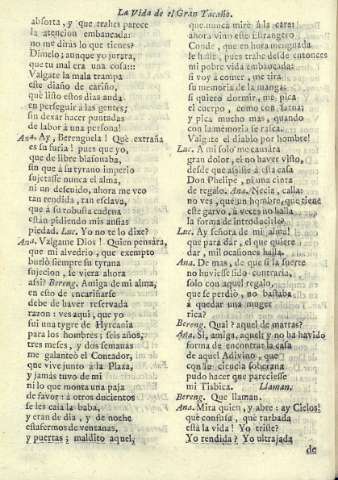 La Vida de el Gran Tacaño.
absorta, y que traes parece
la atencion embancada:
no me dirás lo que tienes?
Dimelo; aunque yo jurára,
que tu mal era una cosa:::
Valgate la mala trampa
este diaño de cariño,
qué listo estos dias anda
en perseguir á las gentes;
sin dexar hacer puntadas
de labor á una persona!
Ana. Ay, Berenguela! Qué extraña
es su furia! pues que yo,
que de libre blasonaba,
sin que à su tyrano imperio
sujetasse nunca el alma,
ni un descuido, ahora me veo
tan rendida, tan esclava,
que á su robusta cadena
están pidiendo mis ansias
piedad. Luc. Yo no te lo dixe?
Ana. Valgame Dios! Quien pensára,
que mi alvedrio, que exempto
burló siempre su tyrana
sujecion, se viera ahora
assi? Bereng. Amiga de mi alma,
en esto de encariñarse
debe de haver reservada
razon: ves aqui, que yo
fui una tygre de Hyrcania
para los hombres; seis años,
tres meses, y dos semanas
me galanteó el Contador,
que vive junto à la Plaza,
y jamás tuvo de mi
ni lo que monta una paja
de favor: á otros docientos
se les caía la baba,
y eran de dia, y de noche
estafermos de ventanas,
y puertas; maldito aquel,
que nunca miré à la cara:
ahora vino este Estrangero
Conde, que en hora menguada
le hallé, pues trahe desde entonces
mi pobre vida embarazada:
si voy á comer, me tira
su memoria de la manga;
si quiero dormir, me pica
el cuerpo, como con sarna;
y pica mucho mas, quando
con la memoria se rasca.
Valgate el diablo por hombre!
Luc. A mi solo me causára
gran dolor, el no haver visto,
desde que assiste á esta casa
Don Phelipe, ni una cinta
de regalo. Ana. Necia, calla:
no ves, que un hombre, que tiene
este garvo, á veces no halla
la forma de introducirlo?
Luc. Ay señora de mi alma!
que para dar, el que quiere
dar, mil ocasiones halla.
Ana. De mas, de que si la suerte
no huviesse sido contraria,
solo con aquel regalo,
que se perdió, no bastaba
á quedar una muger
rica?
Bereng. Qual? aquel de marras?
Ana. Si, amiga, aquel; y no ha havido
forma de encontrar la casa
de aquel Adivino, que
con su ciencia soberana
pudo hacer que pareciesse
mi Tisbita. Llaman.
Bereng. Que llaman.
Ana. Mira quien, y abre: ay Cielos!
qué confusa, qué turbada
está la vida! Yo triste?
Yo rendida? Yo ultrajada
de